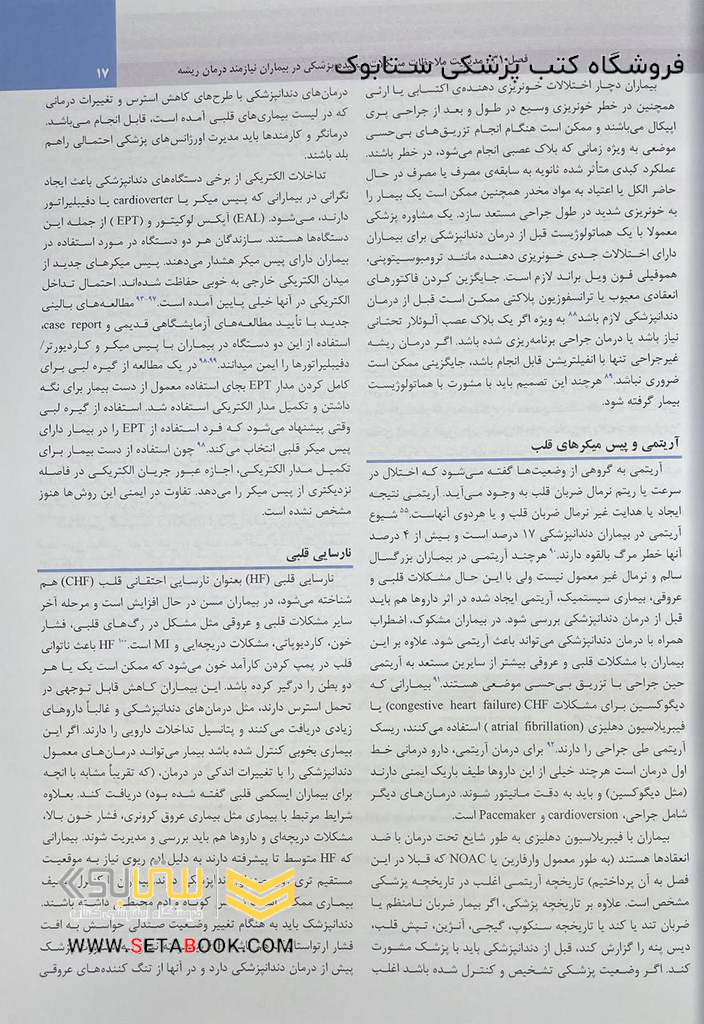 فروشگاه کتب پزشکی ستابوک
۱۷
بیماران دچار اختلالات خونریزی دهنده‌ی اکتسابی یا ارثی
همچنین در خطر خونریزی وسیع در طول و بعد از جراحی پری
اپیکال می‌باشند و ممکن است هنگام انجام تزریق‌های بی‌حسی
موضعی به ویژه زمانی که بلاک عصبی انجام می‌شود، در خطر باشند.
عملکرد کبدی متأثر شده ثانویه به سابقه‌ی مصرف یا مصرف در حال
حاضر الکل یا اعتیاد به مواد مخدر همچنین ممکن است یک بیمار را
به خونریزی شدید در طول جراحی مستعد سازد. یک مشاوره پزشکی
معمولا با یک هماتولوژیست قبل از درمان دندانپزشکی برای بیماران
دارای اختلالات جدی خونریزی دهنده مانند ترومبوسیتوپنی،
هموفیلی فون ویل براند لازم است. جایگزین کردن فاکتورهای
انعقادی معیوب یا ترانسفوزیون پلاکتی ممکن است قبل از درمان
دندانپزشکی لازم باشد۸۸ به ویژه اگر یک بلاک عصب آلوئلار تحتانی
نیاز باشد یا درمان جراحی برنامه‌ریزی شده باشد. اگر درمان ریشه
غیرجراحی تنها با انفیلتریشن قابل انجام باشد، جایگزینی ممکن است
ضروری نباشد.۸۹ هرچند این تصمیم باید با مشورت با هماتولوژیست
بیمار گرفته شود.
آریتمی و پیس میکرهای قلب
آریتمی به گروهی از وضعیت‌ها گفته می‌شود که اختلال در
سرعت یا ریتم نرمال ضربان قلب به وجود می‌آید. آریتمی نتیجه
ایجاد یا هدایت غیر نرمال ضربان قلب و یا هردوی آنهاست.۵۵ شیوع
آریتمی در بیماران دندانپزشکی ۱۷ درصد است و بیش از ۴ درصد
آنها خطر مرگ بالقوه دارند.۹۰ هرچند آریتمی در بیماران بزرگسال
سالم و نرمال غیر معمول نیست ولی با این حال مشکلات قلبی و
عروقی، بیماری سیستمیک، آریتمی ایجاد شده در اثر داروها هم باید
قبل از درمان دندانپزشکی بررسی شود. در بیماران مشکوک، اضطراب
همراه با درمان دندانپزشکی می‌تواند باعث آریتمی شود. علاوه بر این
بیماران با مشکلات قلبی و عروقی بیشتر از سایرین مستعد به آریتمی
حین جراحی با تزریق بی‌حسی موضعی هستند.۹۱ بیمارانی که
دیگوکسین برای مشکلات CHF (congestive heart failure) یا
فیبریلاسیون دهلیزی (atrial fibrillation ) استفاده می‌کنند، ریسک
آریتمی طی جراحی را دارند.۹۲ برای درمان آریتمی، دارو درمانی خط
اول درمان است هرچند خیلی از این داروها طیف باریک ایمنی دارند
(مثل دیگوکسین) و باید به دقت مانیتور شوند. درمان‌های دیگر
شامل جراحی، cardioversion و Pacemaker است.
بیماران با فیبریلاسیون دهلیزی به طور شایع تحت درمان با ضد
انعقادها هستند (به طور معمول وارفارین یا NOAC که قبلا در این
فصل به آن پرداختیم) تاریخچه آریتمی اغلب در تاریخچه پزشکی
مشخص است. علاوه بر تاریخچه پزشکی، اگر بیمار ضربان نامنظم یا
ضربان تند یا کند یا تاریخچه سنکوپ، گیجی، آنژین، تپش قلب،
دیس پنه را گزارش کند، قبل از دندانپزشکی باید با پزشک مشورت
کند. اگر وضعیت پزشکی تشخیص و کنترل شده باشد اغلب
درمان‌های دندانپزشکی با طرح‌های کاهش استرس و تغییرات درمانی
که در لیست بیماری‌های قلبی آمده است، قابل انجام می‌باشد.
درمانگر و کارمندها باید مدیرت اورژانس‌های پزشکی احتمالی راهم
بلد باشند.
تداخلات الکتریکی از برخی دستگاه‌های دندانپزشکی باعث ایجاد
نگرانی در بیمارانی که پیس میکر یا cardioverter یا دفیبلیراتور
دارند، می‌شود. (EAL) آپکس لوکیتور و (EPT ) از جمله این
دستگاه‌ها هستند. سازندگان هر دو دستگاه در مورد استفاده در
بیماران دارای پیس میکر هشدار می‌دهند. پیس میکرهای جدید از
میدان الکتریکی خارجی به خوبی حفاظت شده‌اند. احتمال تداخل
الکتریکی در آنها خیلی پایین آمده است.۹۳-۹۷ مطالعه‌های بالینی
جدید با تأیید مطالعه‌های آزمایشگاهی قدیمی و case report،
استفاده از این دو دستگاه در بیماران با پیس میکر و کاردیورتر/
دفیبلیراتورها را ایمن میدانند.۹۸،۹۹ در یک مطالعه از گیره لبی برای
کامل کردن مدار EPT بجای استفاده معمول از دست بیمار برای نگه
داشتن و تکمیل مدار الکتریکی استفاده شد. استفاده از گیره لبی
وقتی پیشنهاد می‌شود که فرد استفاده از EPT را در بیمار دارای
پیس میکر قلبی انتخاب می‌کند.۹۸ چون استفاده از دست بیمار برای
تکمیل مدار الکتریکی، اجازه عبور جریان الکتریکی در فاصله
نزدیکتری از پیس میکر را می‌دهد. تفاوت در ایمنی این روش‌ها هنوز
مشخص نشده است.
نارسایی قلبی
نارسایی قلبی (HF) بعنوان نارسایی احتقانی قلب (CHF) هم
شناخته می‌شود، در بیماران مسن در حال افزایش است و مرحله آخر
سایر مشکلات قلبی و عروقی مثل مشکل در رگ‌های قلبی، فشار
خون، کاردیوپاتی، مشکلات دریچه‌ایی و MI است.۱۰۰ HF باعث ناتوانی
قلب در پمپ کردن کارآمد خون می‌شود که ممکن است یک یا هر
دو بطن را درگیر کرده باشد. این بیماران کاهش قابل توجهی در
تحمل استرس دارند، مثل درمان‌های دندانپزشکی و غالباً داروهای
زیادی دریافت می‌کنند و پتانسیل تداخلات دارویی را دارند. اگر این
بیماری بخوبی کنترل شده باشد بیمار می‌تواند درمان‌های معمول
دندانپزشکی را با تغییرات اندکی در درمان، (که تقریباً مشابه با انچه
برای بیماران ایسکمی قلبی گفته شده بود) دریافت کند. بعلاوه
شرایط مرتبط با بیماری مثل بیماری عروق کرونری، فشار خون بالا،
مشکلات دریچه‌ای و داروها هم باید بررسی و مدیریت شوند. بیمارانی
که HF متوسط تا پیشرفته دارند به دلیل ادم ریوی نیاز به موقعیت
مستقیم تری
بیماری ممکن
دندانپزشک باید به هنگام تغییر وضعیت صندلی حواسش به افت
فشار ارتواستا
پیش از درمان دندانپزشکی دارد و در آنها از تنگ کننده‌های عروقی
ستابوک
فروشگاه اینترنتی کتاب
WWW.SETABOOK.COM